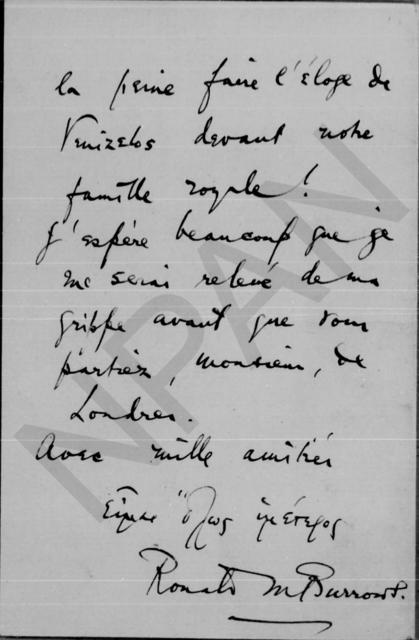 la peine faire l'éloge de
Venizelos devant notre
famille royale!
J'espère beaucoup que je
me serai relevé de ma
grippe avant que vous
partiez, monsieur, de
Londres.
Avec mille amitiés
Εἶμαι ὅλως ὑμέτερος
Ronald M Burrows.
NPAN